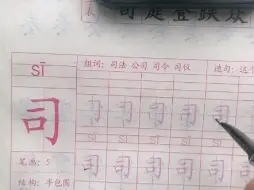 司庭登跃众
sī
组词：司法 公司 司令 司仪
造句：这个
司
司 司 司 司 司
sī sī sī sī sī
笔画：5
结构：半包围
司 司 司 司 司 司